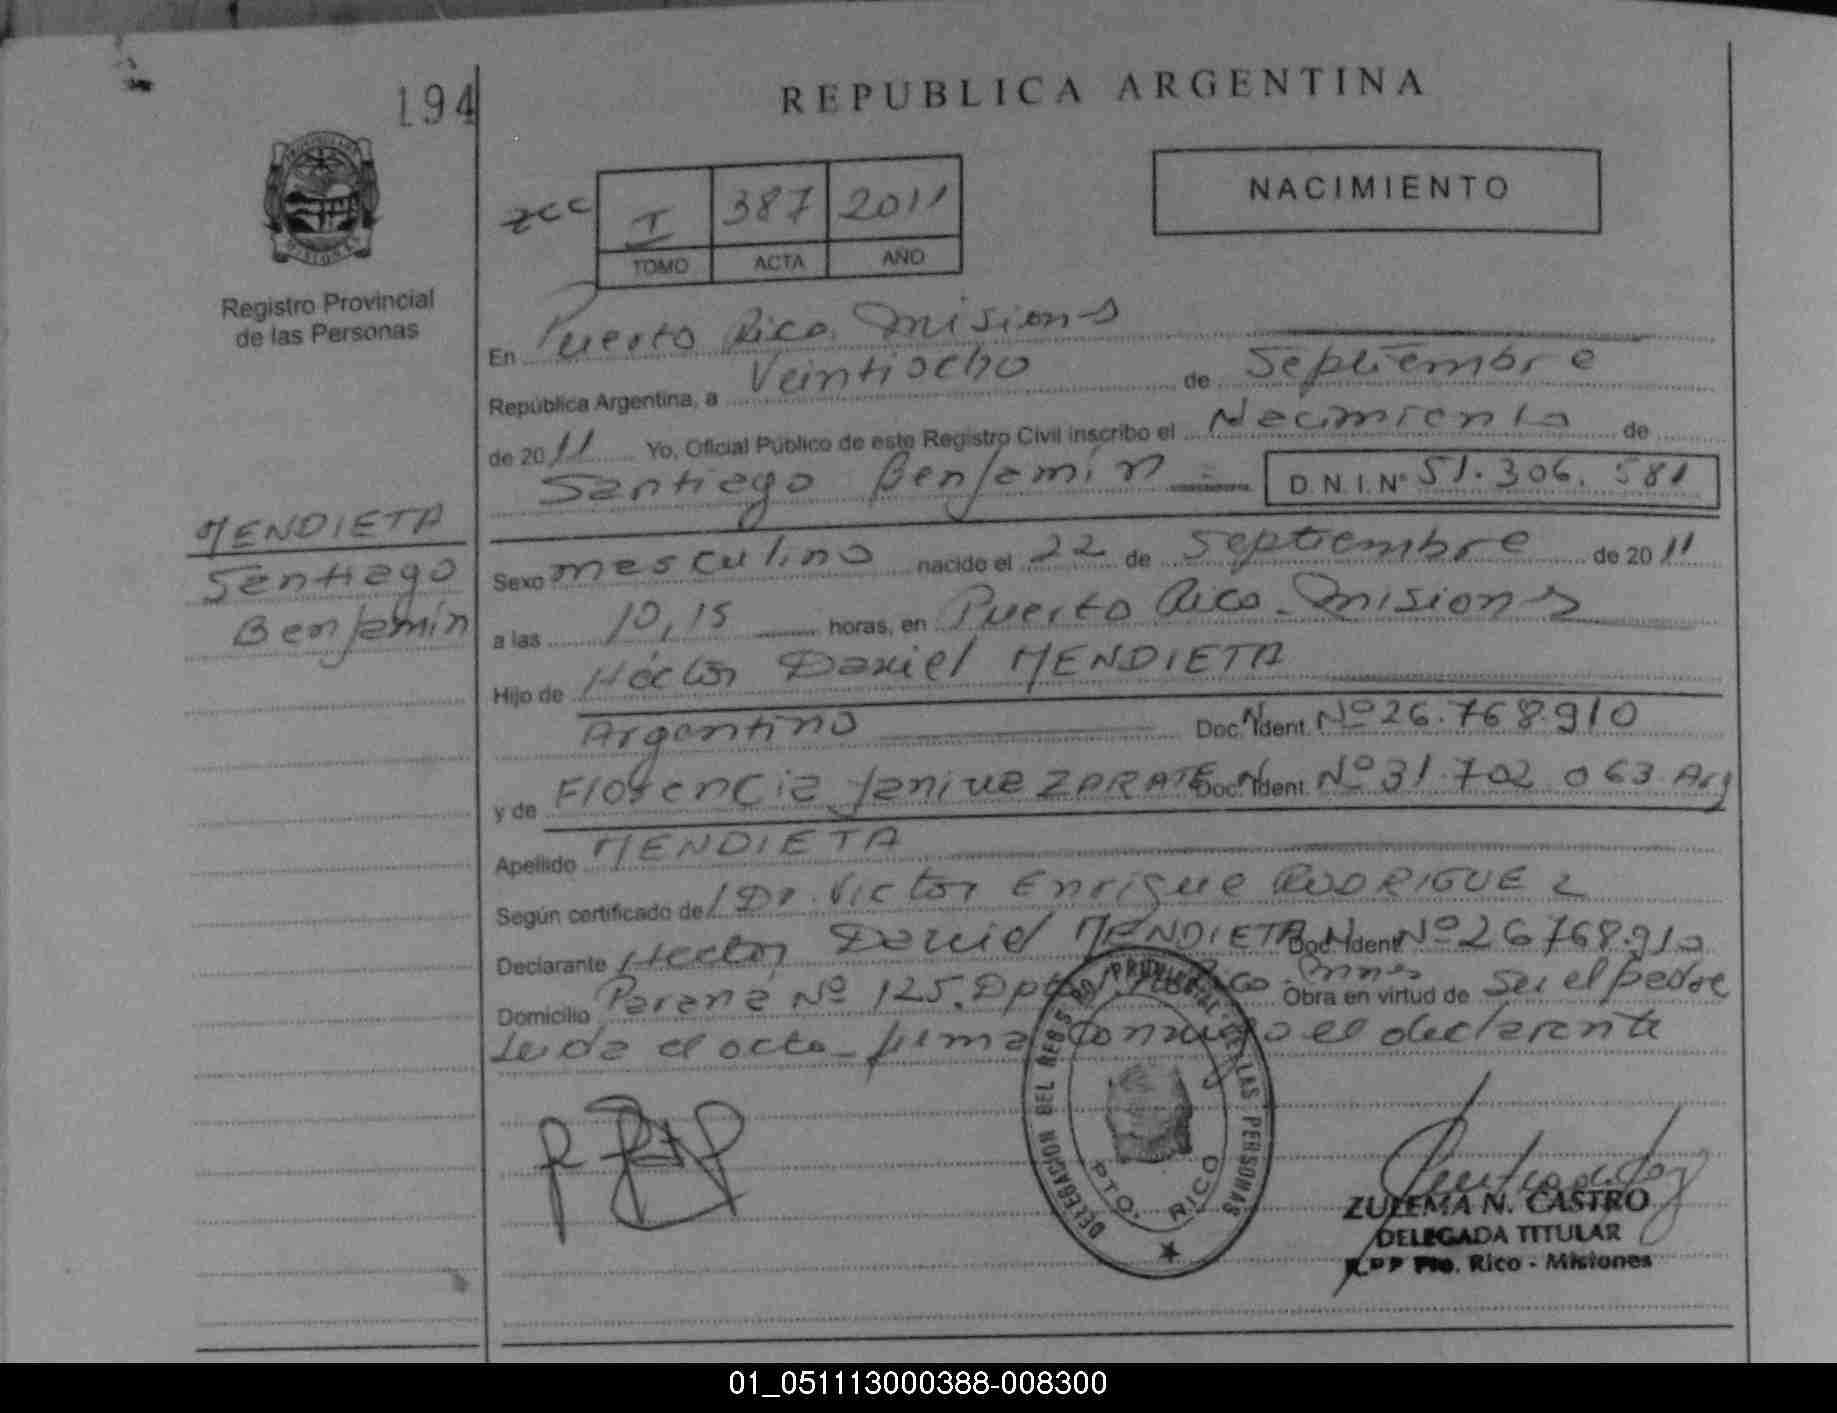 194
REPUBLICA ARGENTINA
NACIMIENTO
I 387 2011
TOMO ACTA AÑO
PROVINCIA DE MISIONES
Registro Provincial
de las Personas
En Puerto Rico. Misiones
República Argentina, a Veintiocho de Septiembre
de 2011 Yo, Oficial Público de este Registro Civil inscribo el Nacimiento de
Santiago Benjamín D.N.I. Nº 51.306.581
MENDIETA
Santiago
Benjamín
Sexo masculino nacido el 22 de Septiembre de 2011
a las 10,15 horas, en Puerto Rico - Misiones
Hijo de Héctor Daniel MENDIETA
Argentino Doc. N. Ident. Nº 26.768.910
y de Florencia Janine ZARATE Doc. N. Ident. Nº 31.702.063. Arg
Apellido MENDIETA
Según certificado de/ Dr. Victor Enrique RODRIGUEZ
Declarante Hector Daniel MENDIETA Doc. N. Ident. Nº 26768.910
Domicilio Paraná Nº 125. Dpto Rico - Mnes Obra en virtud de Ser el padre
Leida el acta - firma conmigo el declarante
DELEGACION DEL REG. PROVINCIAL DE LAS PERSONAS
PTO. RICO
ZULEMA N. CASTRO
DELEGADA TITULAR
R.P.P Pto. Rico - Misiones
01_051113000388-008300